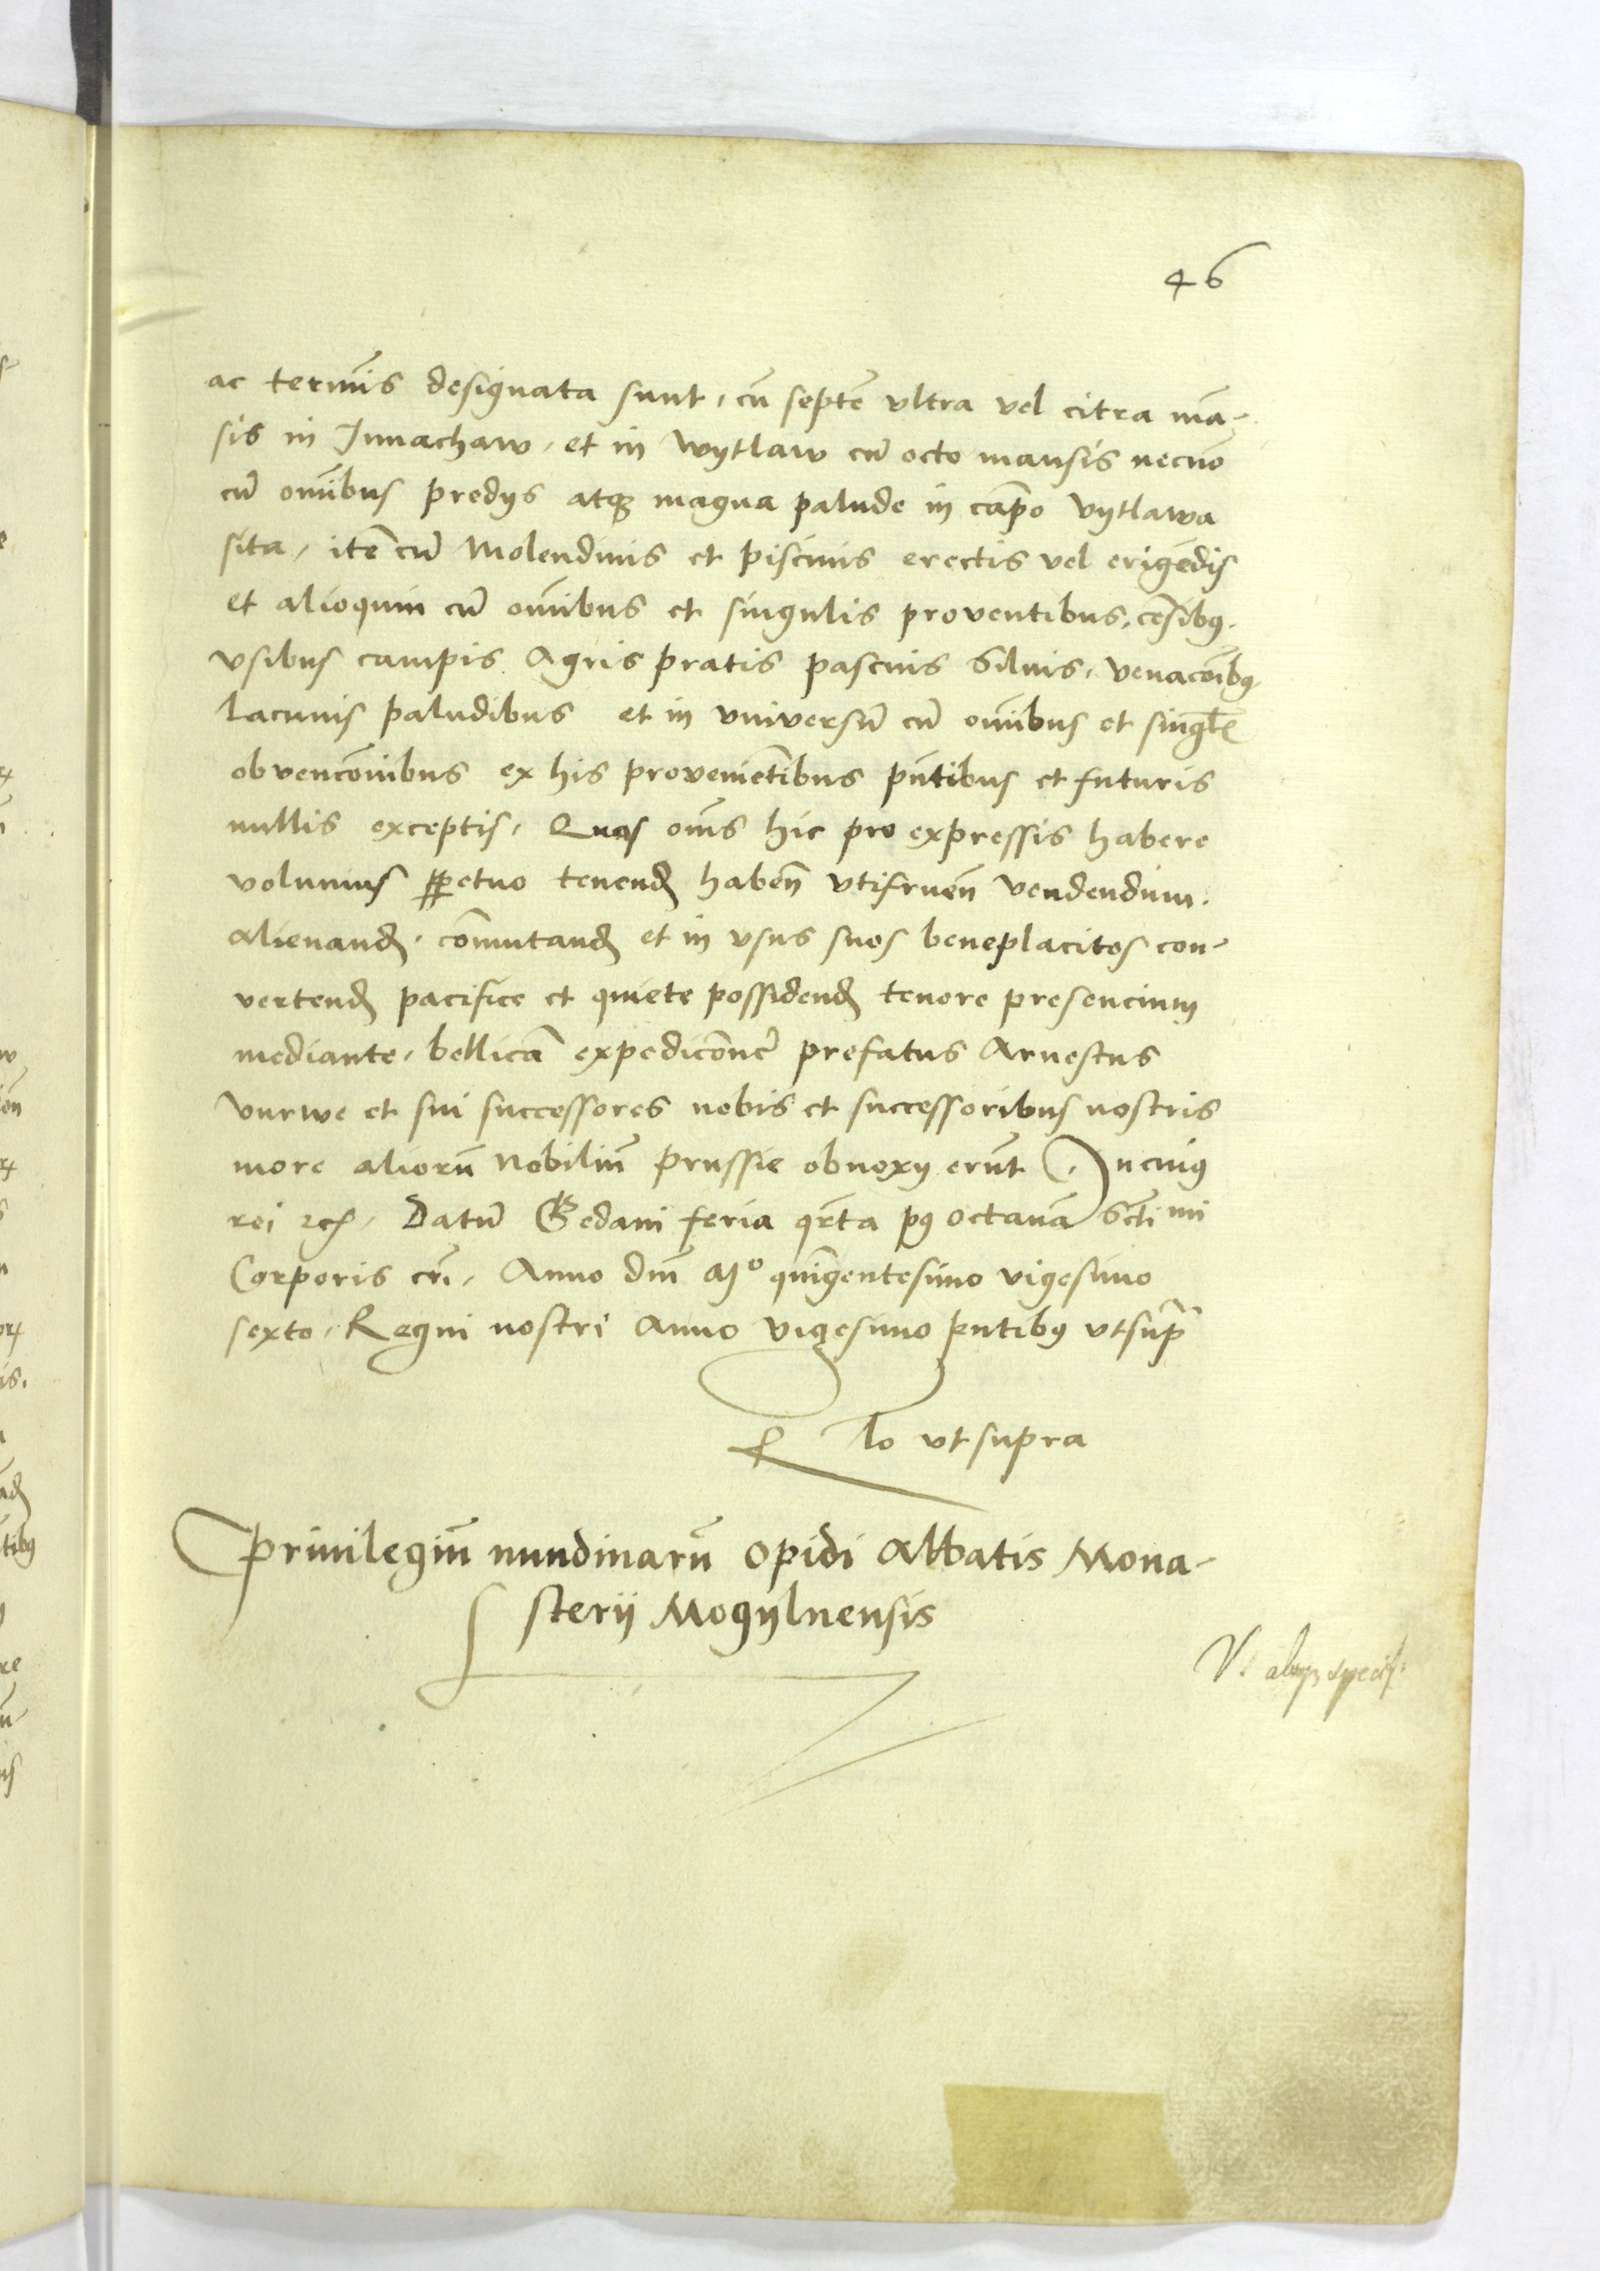 46
ac termis designata sunt, cu septe vltra vel citra ma-
sis in Jmnachaw, et in Wytlaw cu octo mansis necno
cu omibus predys atq magna palude in capo vytlawa
sita, ite cu Molendinis et piscinis erectis vel erigedis
et alioquin cu omibus et singulis proventibus, cesibq,
vsibus campis Agris pratis pascuis Siluis, venacoibq
lacunis paludibus et in vniversu cu omibus et singlis
obvencoibus ex his provenietibus pntibus et futuris
nullis exceptis, Quas oms hic pro expressis habere
volumus ppetuo tenend haben vtifruen vendendum,
alienand, comutand et in vsus suos beneplacitos con-
vertend pacifice et quiete possidend tenore presencium
mediante, bellica expedicone prefatus Arnestus
vnrwe et sui successores nobis et successoribus nostris
more alioru Nobiliu prussie obnoxy erut, Jn cuius
rei etc, Datu Gedani feria qrta pq octava Scti mi
Corporis cri, Anno dni Mo quigentesimo vigesimo
sexto, Regni nostri Anno vigesimo pntibq vtsupra
Rlo vt supra
Priuilegiu nundinaru opidi Abbatis Mona-
sterij Mogylnensis
V.